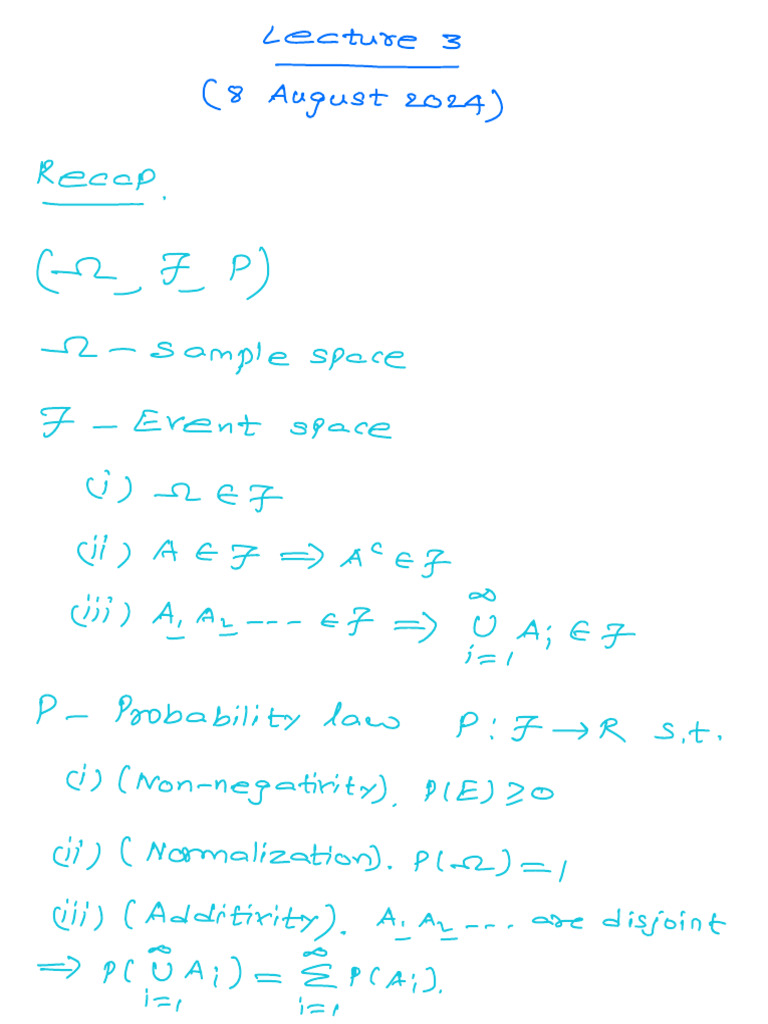 Lecture 3
(8 August 2024)
Recap.
(Ω, F, P)
Ω - sample space
F - Event space
(i) Ω ∈ F
(ii) A ∈ F ⇒ Aᶜ ∈ F
(iii) A₁, A₂, --- ∈ F ⇒ ∞∪i=1 Aᵢ ∈ F
P - Probability law P : F → R s.t.
(i) (Non-negativity). P(E) ≥ 0
(ii) (Normalization). P(Ω) = 1
(iii) (Additivity). A₁, A₂, --- are disjoint
⇒ P(∞∪i=1 Aᵢ) = ∞Σi=1 P(Aᵢ).